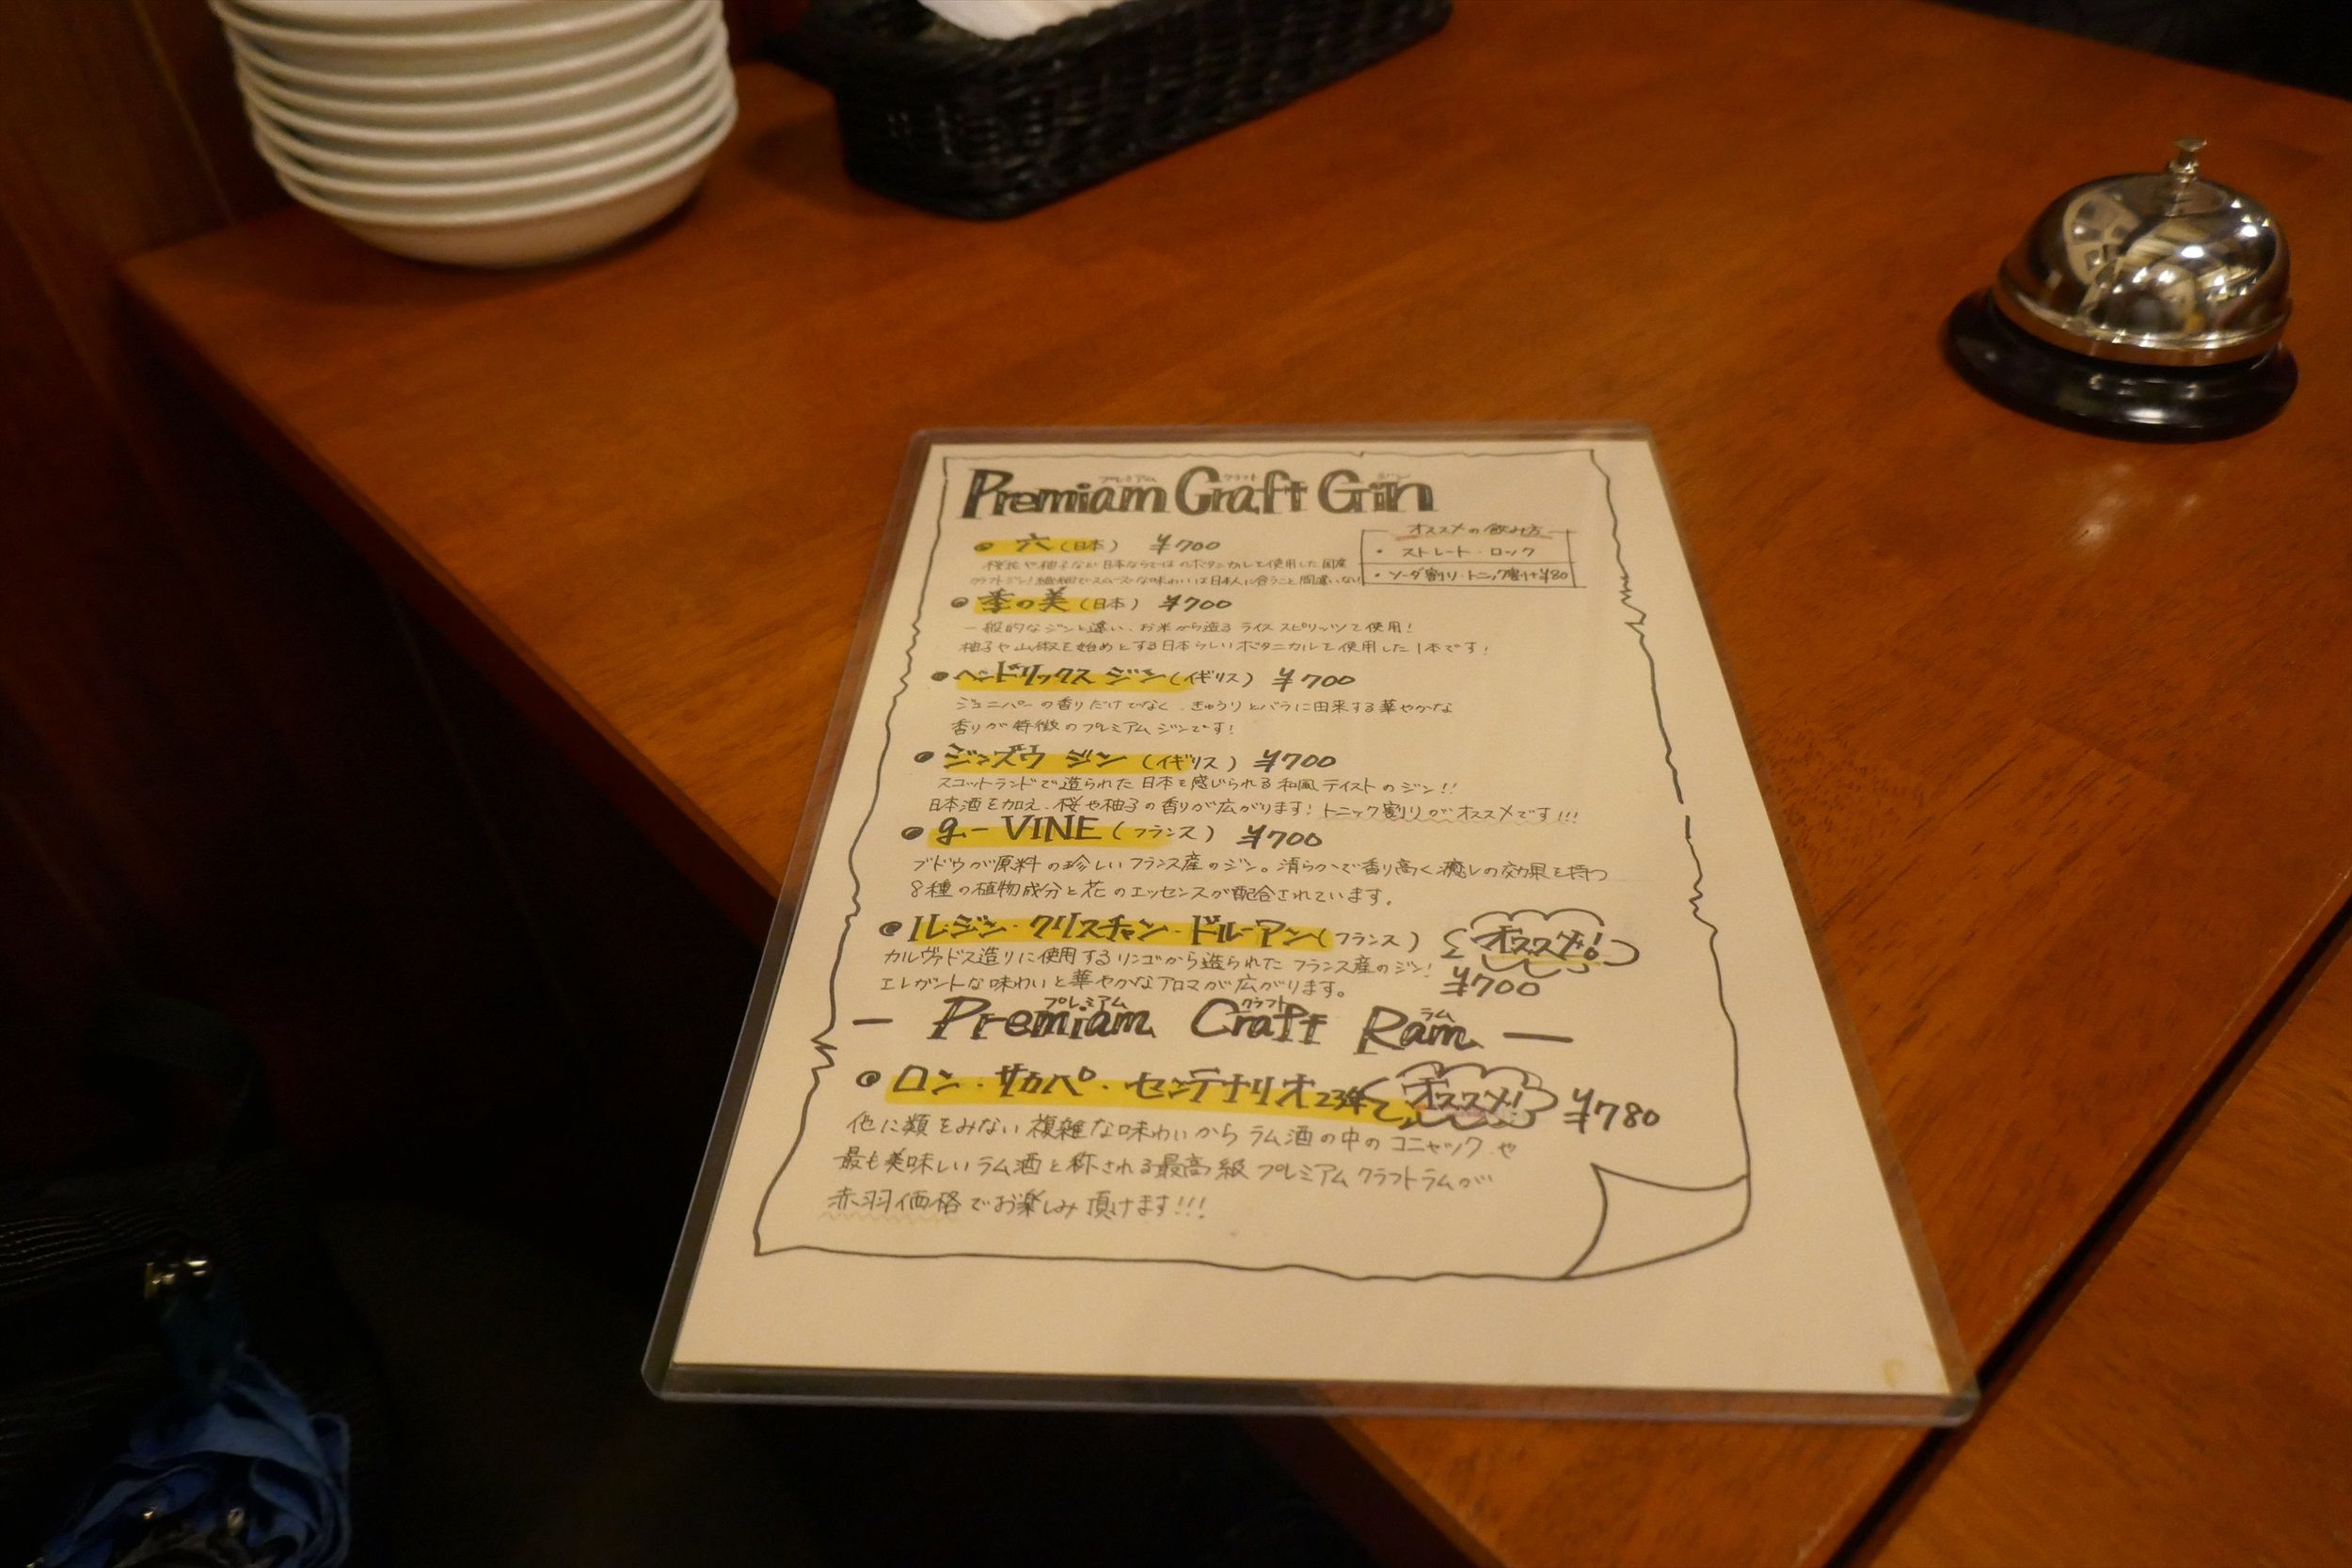 プレミアム クラフト ジン
Premiam Craft Gin
オススメの飲み方
• ストレート・ロック
• ソーダ割り・トニック割り+¥80
• 六(日本) ¥700
桜花や柚子など日本ならではのボタニカルを使用した国産
クラフトジン!繊細でスムースな味わいは日本人に合うこと間違いない!
• 季の美(日本) ¥700
一般的なジンと違い、お米から造るライススピリッツを使用!
柚子や山椒を始めとする日本らしいボタニカルを使用した1本です!
• ヘンドリックス ジン(イギリス) ¥700
ジュニパーの香りだけでなく、きゅうりとバラに由来する華やかな
香りが特徴のプレミアムジンです!
• ジンズウ ジン(イギリス) ¥700
スコットランドで造られた日本を感じられる和風テイストのジン!!
日本酒を加え、桜や柚子の香りが広がります!トニック割りがオススメです!!!
• g-VINE(フランス) ¥700
ブドウが原料の珍しいフランス産のジン。清らかで香り高く癒しの効果を持つ
8種の植物成分と花のエッセンスが配合されています。
• ル・ジン・クリスチャン・ドルーアン(フランス) オススメ!
カルヴァドス造りに使用するリンゴから造られたフランス産のジン! ¥700
エレガントな味わいと華やかなアロマが広がります。
プレミアム クラフト ラム
— Premiam Craft Ram —
• ロン・サカパ・センテナリオ23年 オススメ! ¥780
他に類をみない複雑な味わいからラム酒の中のコニャックや
最も美味しいラム酒と称される最高級プレミアムクラフトラムが
赤羽価格でお楽しみ頂けます!!!